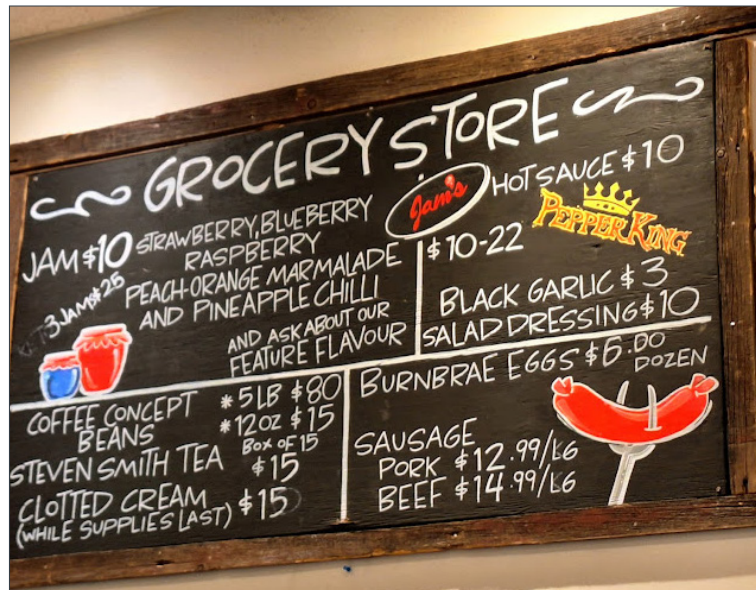 GROCERY STORE
JAM $10 STRAWBERRY, BLUEBERRY
RASPBERRY
PEACH-ORANGE MARMALADE
AND PINEAPPLE CHILLI
3 JAMS $25
AND ASK ABOUT OUR
FEATURE FLAVOUR
Jam's HOT SAUCE $10
PEPPER KING
$10-22
BLACK GARLIC $3
SALAD DRESSING $10
COFFEE CONCEPT BEANS
* 5 LB $80
* 12 OZ $15
STEVEN SMITH TEA BOX OF 15 $15
CLOTTED CREAM $15
(WHILE SUPPLIES LAST)
BURNBRAE EGGS $6.00
DOZEN
SAUSAGE
PORK $12.99/KG
BEEF $14.99/KG